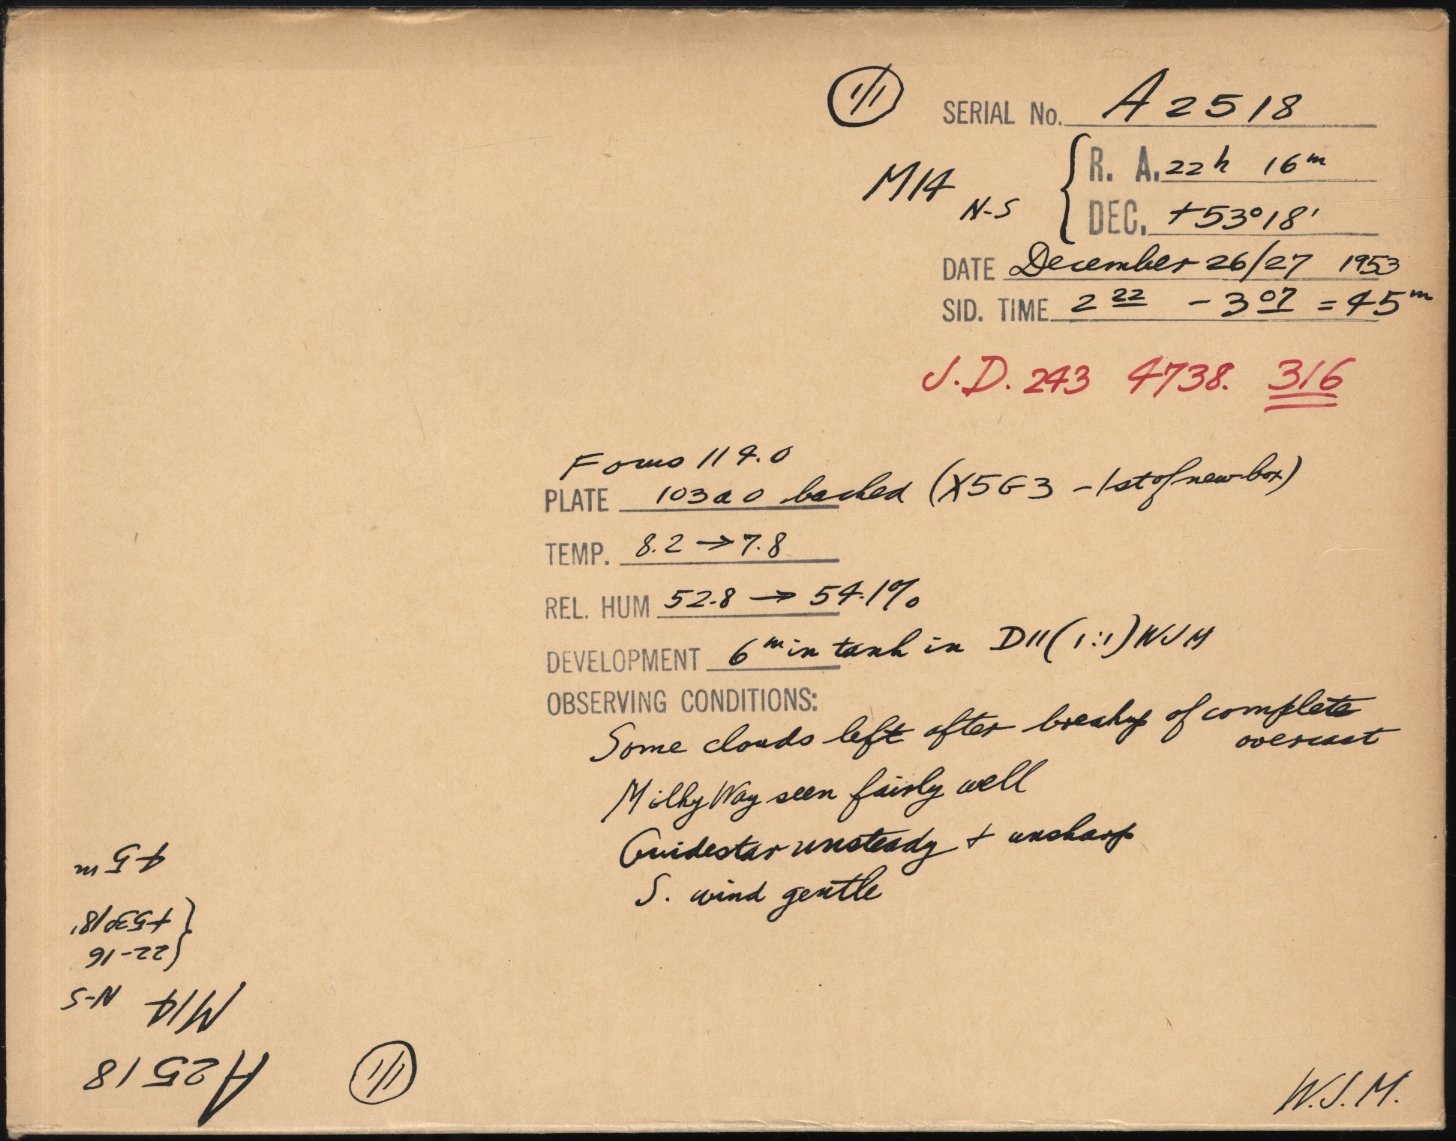 1/1
SERIAL No. A2518
M14 N-S
R. A. 22h 16m
DEC. +53°18'
DATE December 26/27 1953
SID. TIME 2 22 - 3 07 = 45m
J.D. 243 4738. 316
Focus 114.0
PLATE 103a0 backed (X5G3 - 1st of new box)
TEMP. 8.2 → 7.8
REL. HUM 52.8 → 54.1%
DEVELOPMENT 6min tank in D11 (1:1) WJM
OBSERVING CONDITIONS:
Some clouds left after breakup of complete
overcast
Milky Way seen fairly well
Guidestar unsteady + unsharp
S. wind gentle
W.J.M.
1/1
A2518
M14 N-S
22-16
+53°18'
45m